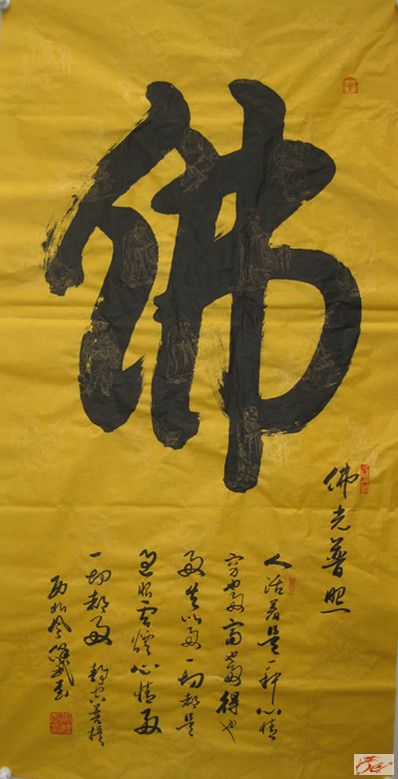 佛
佛光普照
人活着是一种心情
穷也好富也好得也
好失也好一切都是
过眼云烟心情好
一切都好